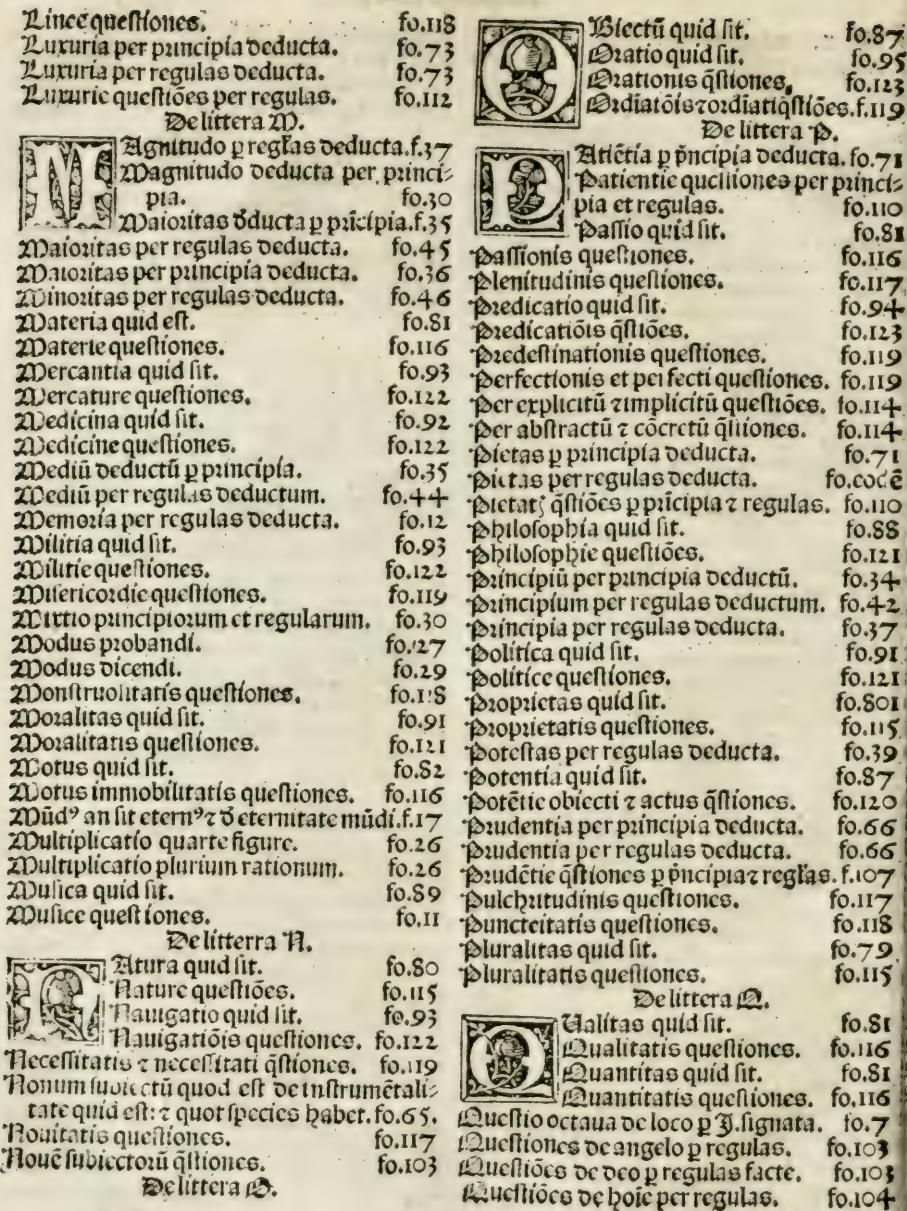 Lincee questiones. fo.118
Luxuria per principia deducta. fo.73
Luxuria per regulas deducta. fo.73
Luxurie questiões per regulas. fo.112
De littera M.
MAgnitudo ꝑ regłas deducta.f.37
Magnitudo deducta per princi⸗
pia. fo.30
Maioritas ďducta ꝑ prīcipia.f.35
Maioritas per regulas deducta. fo.45
Maioritas per principia deducta. fo.36
Minoritas per regulas deducta. fo.46
Materia quid est. fo.81
Materie questiones. fo.116
Mercantia quid sit. fo.93
Mercature questiones. fo.122
Medicina quid sit. fo.92
Medicine questiones. fo.122
Mediū deductū ꝑ principia. fo.35
Mediū per regulas deductum. fo.44
Memoria per regulas deducta. fo.12
Militia quid sit. fo.93
Militie questiones. fo.122
Misericordie questiones. fo.119
Mixtio principiorum et regularum. fo.30
Modus probandi. fo.27
Modus dicendi. fo.29
Monstruositatis questiones. fo.118
Moralitas quid sit. fo.91
Moralitatis questiones. fo.121
Motus quid sit. fo.82
Motus immobilitatis questiones. fo.116
Mūdꝰ an sit eternꝰ ⁊ ď eternitate mūdi.f.17
Multiplicatio quarte figure. fo.26
Multiplicatio plurium rationum. fo.26
Musica quid sit. fo.89
Musice questiones. fo.11
De litterra N.
NAtura quid sit. fo.80
Nature questiões. fo.115
Nauigatio quid sit. fo.93
Nauigatiōis questiones. fo.122
Necessitatis ⁊ necessitati q̄stiones. fo.119
Nonum subiectū quod est de instrumētali⸗
tate quid est: ⁊ quot species habet.fo.65.
Nouitatis questiones. fo.117
Nouē subiectorū q̄stiones. fo.103
De littera O.
OBiectū quid sit. fo.87
Oratio quid sit. fo.95
Orationis q̄stiones. fo.123
Ordiatōis ⁊ ordiati q̄stiões.f.119
De littera P.
PAtiētia ꝑ p̄ncipia deducta. fo.71
Patientie questiones per princi⸗
pia et regulas. fo.110
Passio quid sit. fo.81
Passionis questiones. fo.116
Plenitudinis questiones. fo.117
Predicatio quid sit. fo.94
Predicatiōis q̄stiōes. fo.123
Predestinationis questiones. fo.119
Perfectionis et perfecti questiones. fo.119
Per explicitū ⁊ implicitū questiōes. fo.114
Per abstractū ⁊ cōcretū q̄stiones. fo.114
Pietas ꝑ principia deducta. fo.71
Pietas per regulas deducta. fo.eodē
Pietatꝭ q̄stiōes ꝑ prīcipia ⁊ regulas. fo.110
Philosophia quid sit. fo.88
Philosophie questiōes. fo.121
Principiū per principia deductū. fo.34
Principium per regulas deductum. fo.42
Principia per regulas deducta. fo.37
Politica quid sit. fo.91
Politice questiones. fo.121
Proprietas quid sit. fo.801
Proprietatis questiones. fo.115
Potestas per regulas deducta. fo.39
Potentia quid sit. fo.87
Potētie obiecti ⁊ actus q̄stiones. fo.120
Prudentia per principia deducta. fo.66
Prudentia per regulas deducta. fo.66
Prudētie q̄stiones ꝑ p̄ncipia ⁊ regłas. f.107
Pulchritudinis questiones. fo.117
Puncteitatis questiones. fo.118
Pluralitas quid sit. fo.79
Pluralitatis questiones. fo.115
De littera Q.
QUalitas quid sit. fo.81
Qualitatis questiones. fo.116
Quantitas quid sit. fo.81
Quantitatis questiones. fo.116
Questio octaua de loco ꝑ J.signata. fo.7
Questiones de angelo ꝑ regulas. fo.103
Questiōes de deo ꝑ regulas facte. fo.103
Questiōes de hoīe per regulas. fo.104